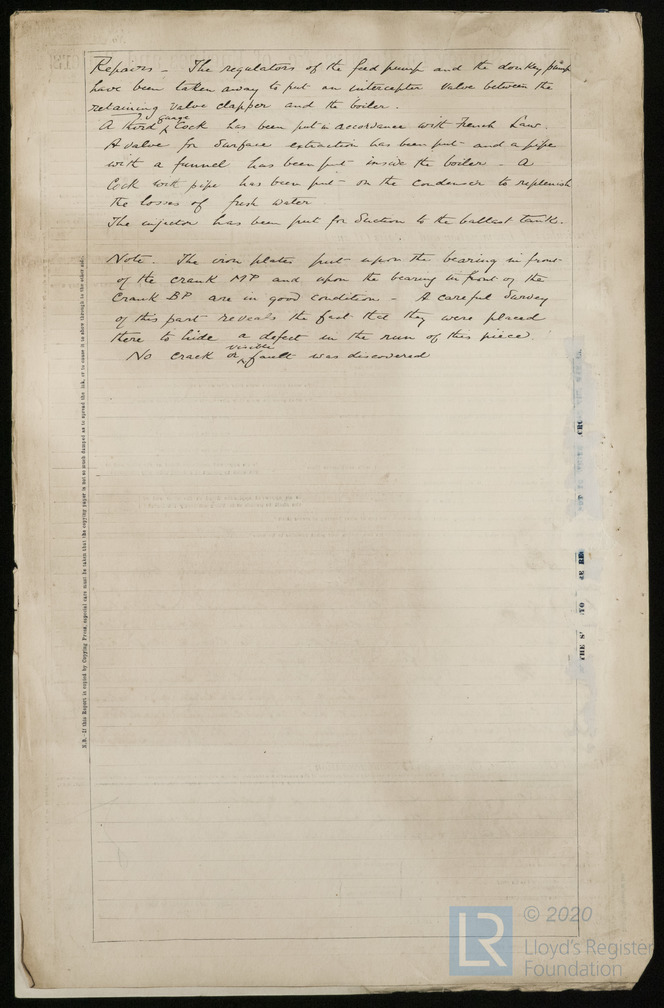 Repairs – The regulators of the feed pump and the donkey pump
have been taken away to put an intercepter valve between the
retaining valve clapper and the boiler.
A third gauge cock has been put in accordance with French Law.
A valve for surface extraction has been put – and a pipe
with a funnel has been put inside the boiler – A
Cock with pipe has been put – on the condenser to replenish
the losses of fresh water
The injector has been put for suction to the ballast tank.
Note. The iron plates put upon the bearing in front
of the crank MP and upon the bearing in front of the
Crank BP are in good condition – A careful survey
of this part reveals the fact that they were placed
there to hide a defect in the run of this piece.
No crack or visible fault was discovered
N.B.–If this Report is copied by Copying Press, especial care must be taken that the copying paper is not so much damped as to spread the ink, or to cause it to show through to the other side.
THE S TO
© 2020
LR
Lloyd's Register
Foundation